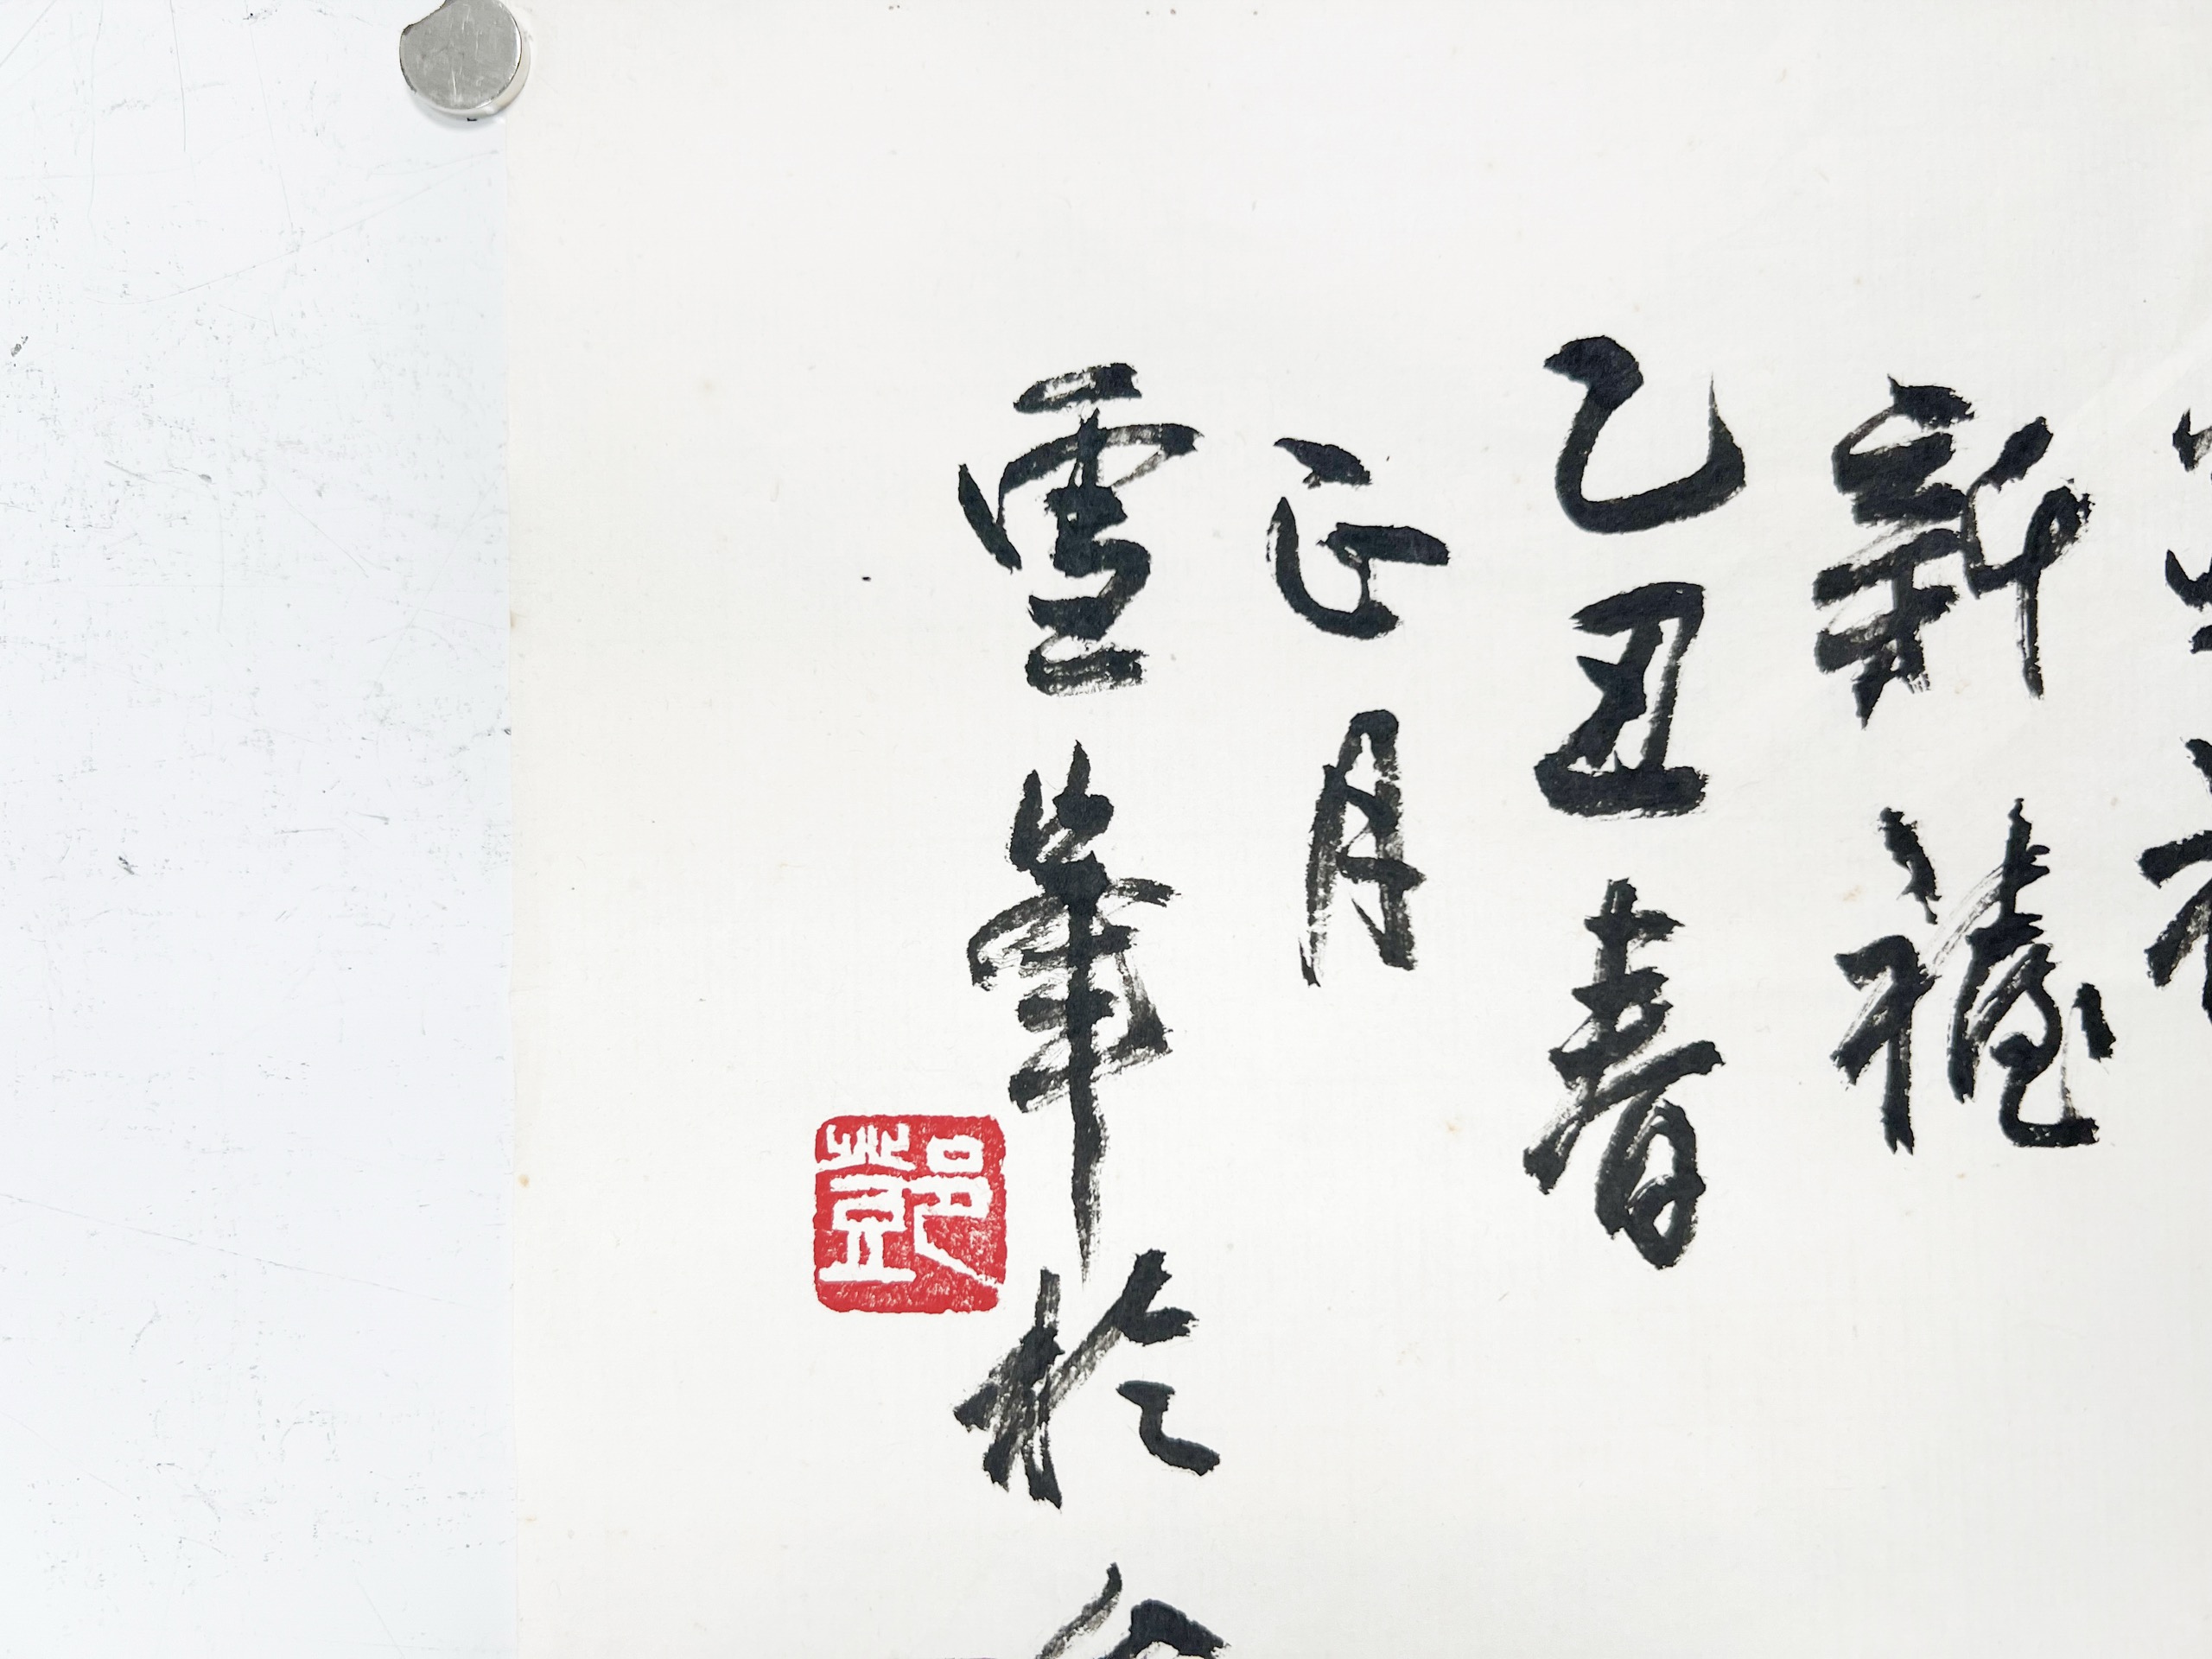 新禧
乙丑春
正月
雪峯於
鄧